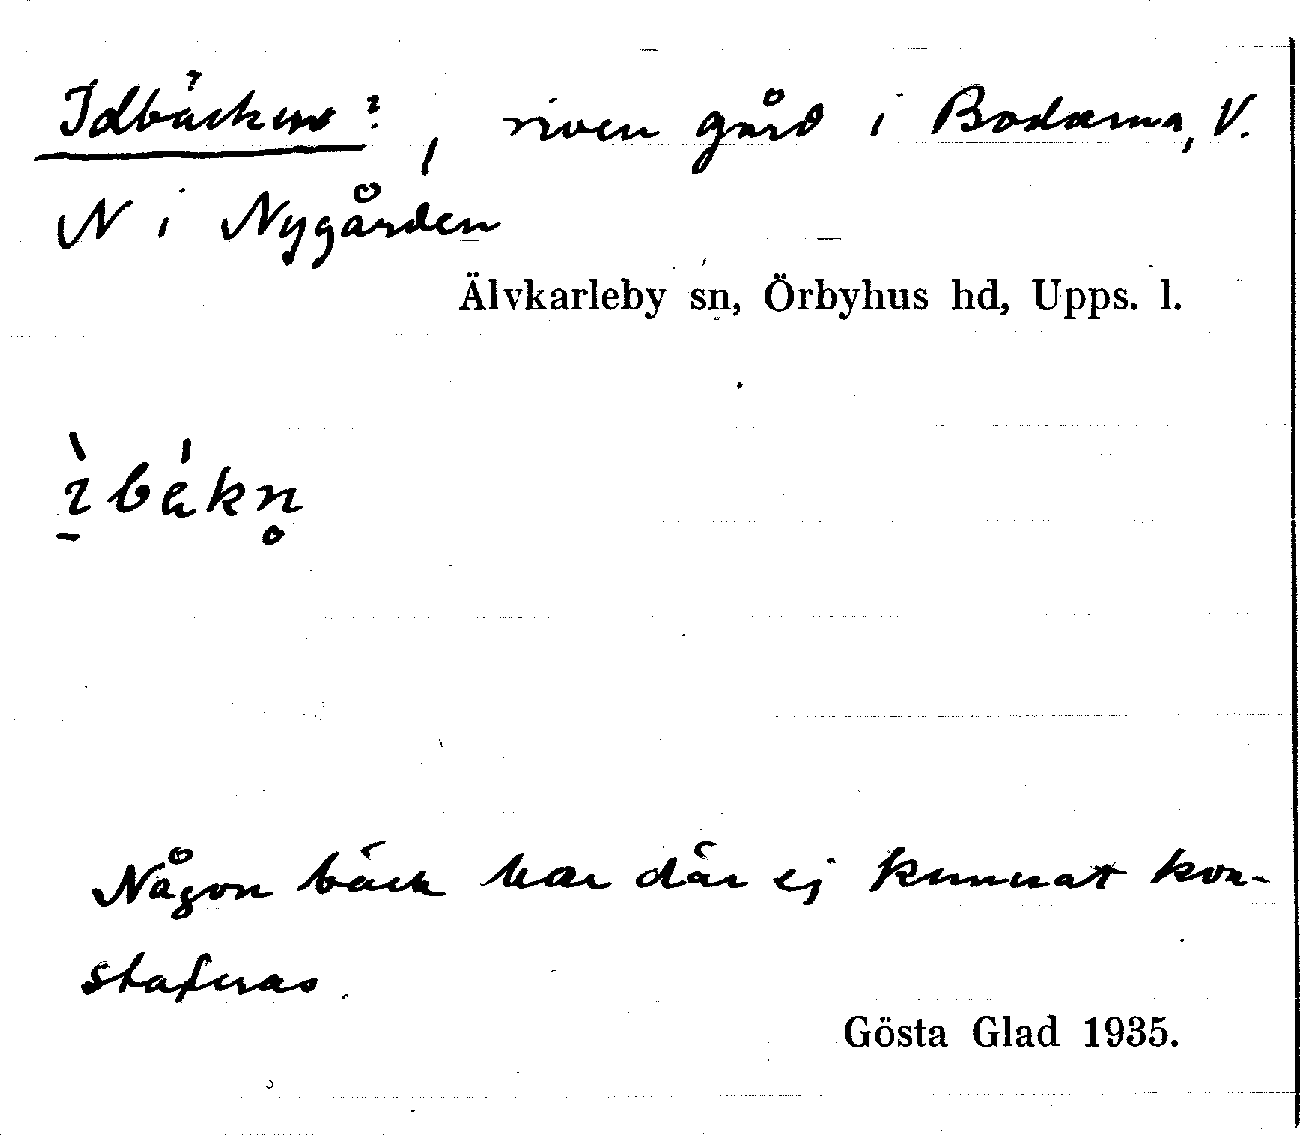 Idbäcken?, riven gård i Bodarna, V.
N i Nygården
Älvkarleby sn, Örbyhus hd, Upps. l.
ì̱ bákn̥
Någon bäck har där ej kunnat kon-
stateras.
Gösta Glad 1935.